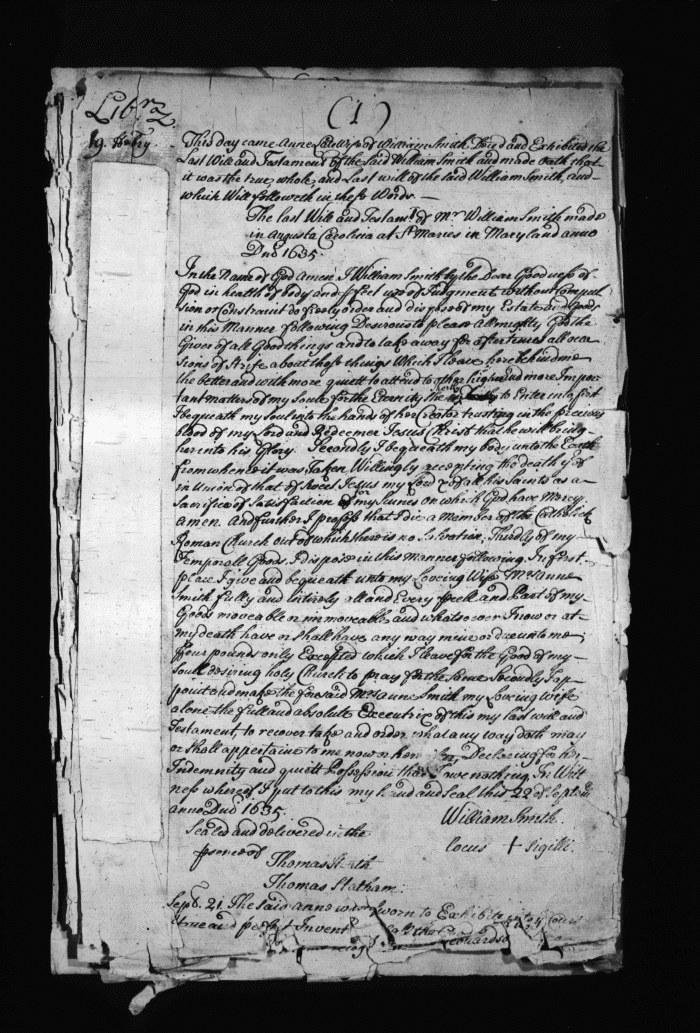 (1)
Libr 2
19.
This day came Anne Late Wife of William Smith and Exhibited the
Last Will and Testament of the said William Smith and made Oath that
it was the true whole and Last will of the said William Smith, and
which Will followeth in these Words
The last Will and Testamt of Mr William Smith made
in Augusta Carolina at St Maries in Maryland anno
Dno 1635.
In the Name of God Amen I William Smith by the Dear Goodness of
God in health of body and use of Judgment without Compul
sion or Constraint do freely order and dispose of my Estate and Goods
in this Manner following Desirous to please Allmighty God the
Giver of all Good things and to take away for aftertimes all occa
sions of Strife about those things Which I leave here behind me
the better and with more quiett to attend to other higher and more Impor
tant matters of my Soule for the Eternity to Enter into first
I bequeath my Soul into the hands of her Creator trusting in the precious
blood of my Lord and Redeemer Jesus Christ that he will bring
her into his Glory. Secondly I bequeath my body unto the Earth
from whence it was Taken Willingly accepting the death
in Union of that of Jesus my Lord & of all his Saints as a
Sacrifice of Satisfaction for my Sinnes on which God have Mercy
Amen. And further I profess that I die a Member of the Catholick
Roman Church out of which there is no Salvation. Thirdly of my
Temporall Goods. I dispose in this Manner following. In first
place I give and bequeath unto my Loveing Wife Mrs Anne
Smith fully and Entirely all and Every and Part of my
Goods moveable or immoveable and whatsoever I now or at
my death have or shall have any way mine or due unto me
ffour pounds only Excepted which I leave for the Good of my
Soull desiring holy Church to pray for the same Secondly I ap
point and make the foresaid Mrs Anne Smith my Loveing Wife
alone the full and absolute Executrix of this my last will and
Testament, to recover take and order what any way doth may
or shall appertaine to me now or Declaring for her
Indemnity and quiett Possession that I owe nothing. In Witt
ness whereof I put to this my hand and Seal this 22 of Septem
anno Dno 1635.
William Smith
Sealed and delivered in the
locus + Sigilli
of
Thomas
Thomas Statham
Sept. 21. The said Anne was sworn to Exhibite
true and perfect Invent